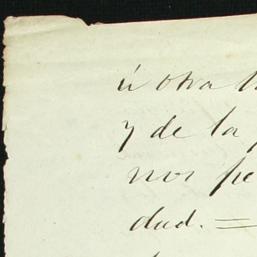 ú otra
y de la
nos pe
dad. =